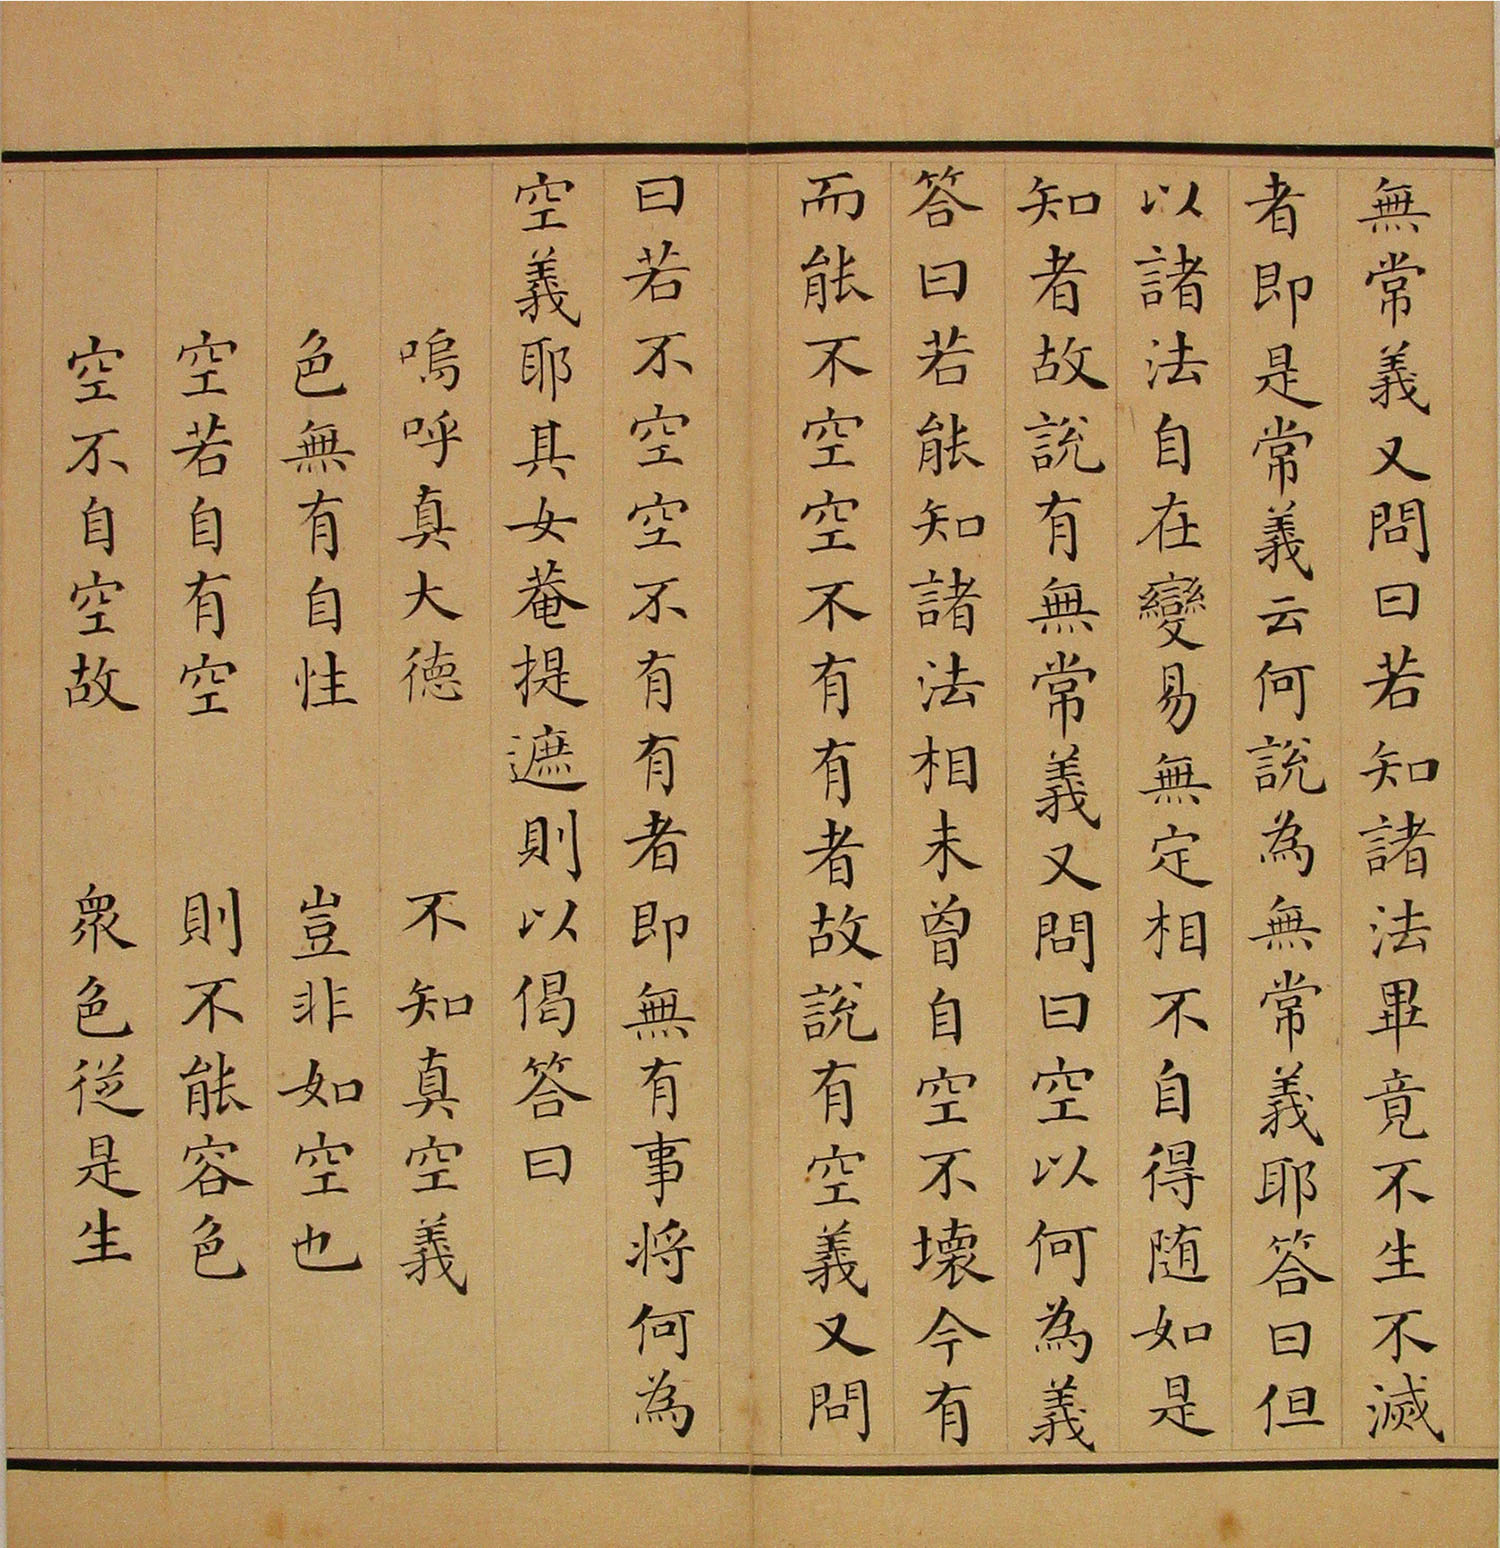 無常義又問曰若知諸法畢竟不生不滅
者即是常義云何說為無常義耶答曰但
以諸法自在變易無定相不自得随如是
知者故說有無常義又問曰空以何為義
答曰若能知諸法相未曾自空不壞今有
而能不空空不有有者故說有空義又問
曰若不空空不有有者即無有事将何為
空義耶其女菴提遮則以偈答曰
嗚呼真大德　不知真空義
色無有自性　豈非如空也
空若自有空　則不能容色
空不自空故　衆色從是生